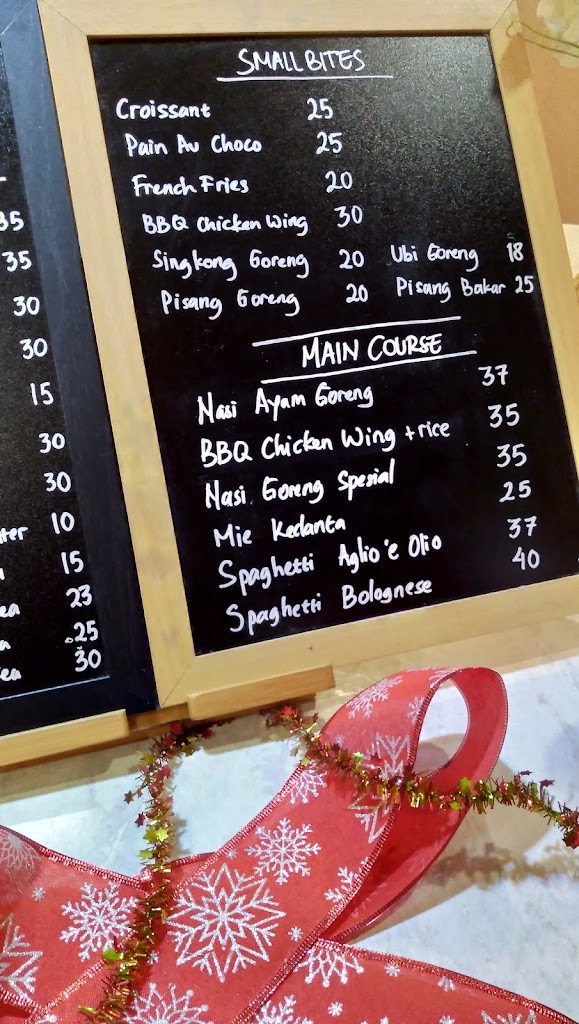 35
35
30
30
15
30
30
10
15
23
25
30
SMALL BITES
Croissant 25
Pain Au Choco 25
French Fries 20
BBQ Chicken Wing 30
Singkong Goreng 20 Ubi Goreng 18
Pisang Goreng 20 Pisang Bakar 25
MAIN COURSE
Nasi Ayam Goreng 37
BBQ Chicken Wing + rice 35
Nasi Goreng Spesial 35
Mie Kedanta 25
Spaghetti Aglio 'e Olio 37
Spaghetti Bolognese 40